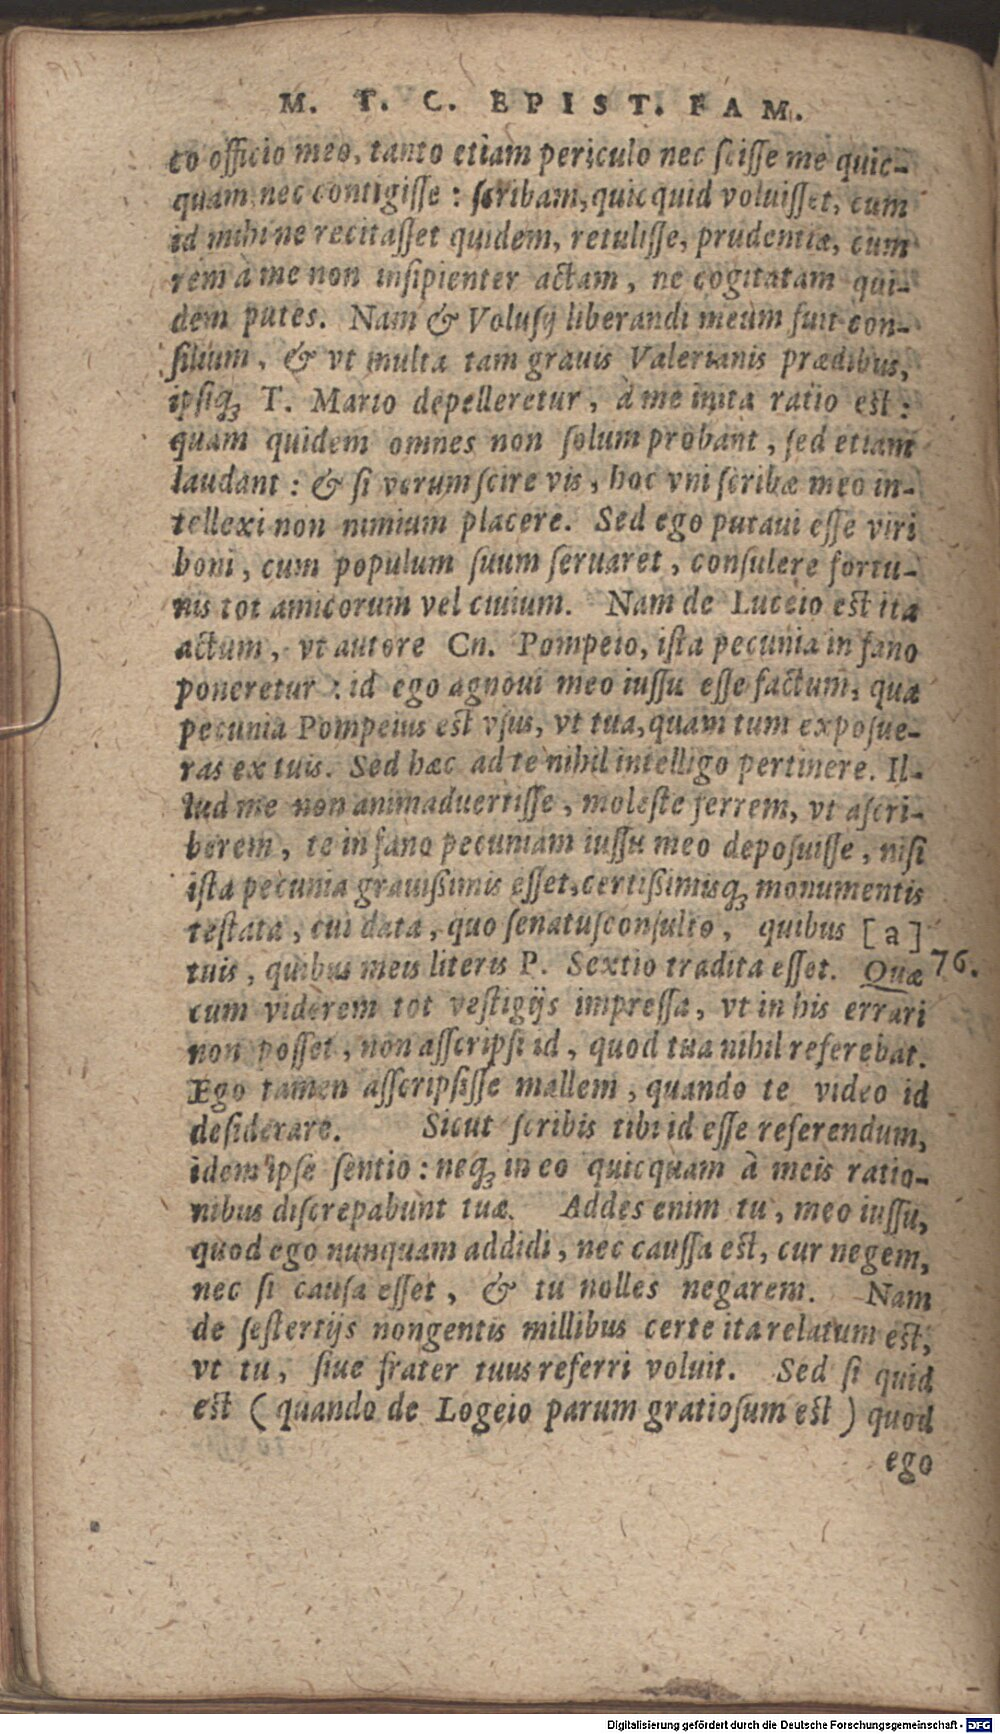 M. T. C. EPIST. FAM.
to officio meo, tanto etiam periculo nec scisse me quic-
quam nec contigisse : scribam, quicquid voluisset, cum
id mihi ne recitasset quidem, retulisse, prudentiæ, cum
rem à me non insipienter actam, ne cogitatam qui-
dem putes. Nam & Volusij liberandi meum fuit con-
silium, & vt multa tam grauis Valerianis prædibus,
ipsiq; T. Mario depelleretur, à me inita ratio est :
quam quidem omnes non solum probant, sed etiam
laudant : & si verum scire vis, hoc vni scribæ meo in-
tellexi non nimium placere. Sed ego putaui esse viri
boni, cum populum suum seruaret, consulere fortu-
nis tot amicorum vel ciuium. Nam de Luceio est ita
actum, vt autore Cn. Pompeio, ista pecunia in fano
poneretur : id ego agnoui meo iussu esse factum, qua
pecunia Pompeius est vsus, vt tua, quam tum exposue-
ras ex tuis. Sed hæc ad te nihil intelligo pertinere. Il-
lud me non animaduertisse, moleste ferrem, vt ascri-
berem, te in fano pecuniam iussu meo deposuisse, nisi
ista pecunia grauißimis esset, certißimisq; monumentis
testata, cui data, quo senatusconsulto, quibus [a]
tuis, quibus meis literis P. Sextio tradita esset. Quæ 76.
cum viderem tot vestigijs impressa, vt in his errari
non posset, non asscripsi id, quod tua nihil referebat.
Ego tamen asscripsisse mallem, quando te video id
desiderare. Sicut scribis tibi id esse referendum,
idem ipse sentio : neq; in eo quicquam à meis ratio-
nibus discrepabunt tuæ. Addes enim tu, meo iussu,
quod ego nunquam addidi, nec caussa est, cur negem,
nec si causa esset, & tu nolles negarem. Nam
de sestertijs nongentis millibus certe ita relatum est,
vt tu, siue frater tuus referri voluit. Sed si quid
est (quando de Logeio parum gratiosum est) quod
ego
Digitalisierung gefördert durch die Deutsche Forschungsgemeinschaft - DFG